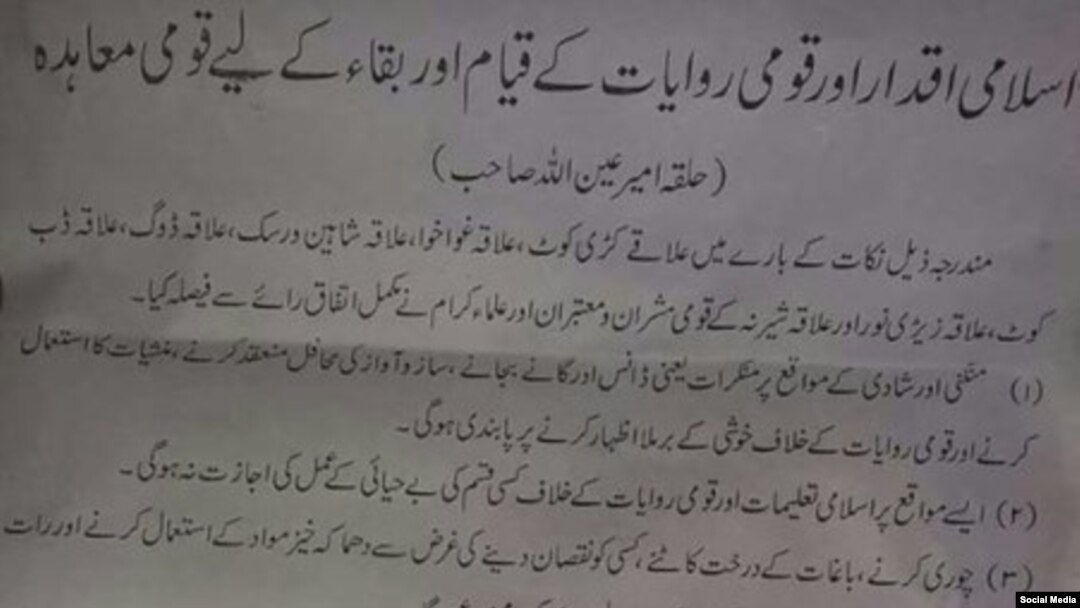 اسلامی اقدار اور قومی روایات کے قیام اور بقاء کے لیے قومی معاہدہ
(حلقہ امیر عین اللہ صاحب)
مندرجہ ذیل نکات کے بارے میں علاقے کڑی کوٹ، علاقہ غواخوا، علاقہ شاہین ورسک، علاقہ ڈوگ، علاقہ ڈب
کوٹ، علاقہ زیڑی نور اور علاقہ شیرنہ کے قومی مشران و معتبران اور علماء کرام نے مکمل اتفاق رائے سے فیصلہ کیا۔
(۱) منگنی اور شادی کے مواقع پر منکرات یعنی ڈانس اور گانے بجانے، ساز و آواز کی محافل منعقد کرنے، منشیات کا استعمال
کرنے اور قومی روایات کے خلاف خوشی کے برملا اظہار کرنے پر پابندی ہوگی۔
(۲) ایسے مواقع پر اسلامی تعلیمات اور قومی روایات کے خلاف کسی قسم کی بے حیائی کے عمل کی اجازت نہ ہوگی۔
(۳) چوری کرنے، باغات کے درخت کاٹنے، کسی کو نقصان دینے کی غرض سے دھماکہ خیز مواد کے استعمال کرنے اور رات
Social Media